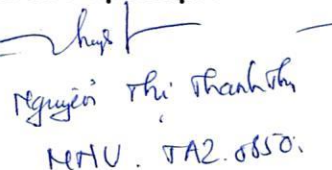 Nguyễn Thị Thanh Thu
MNV. TA2.0650.